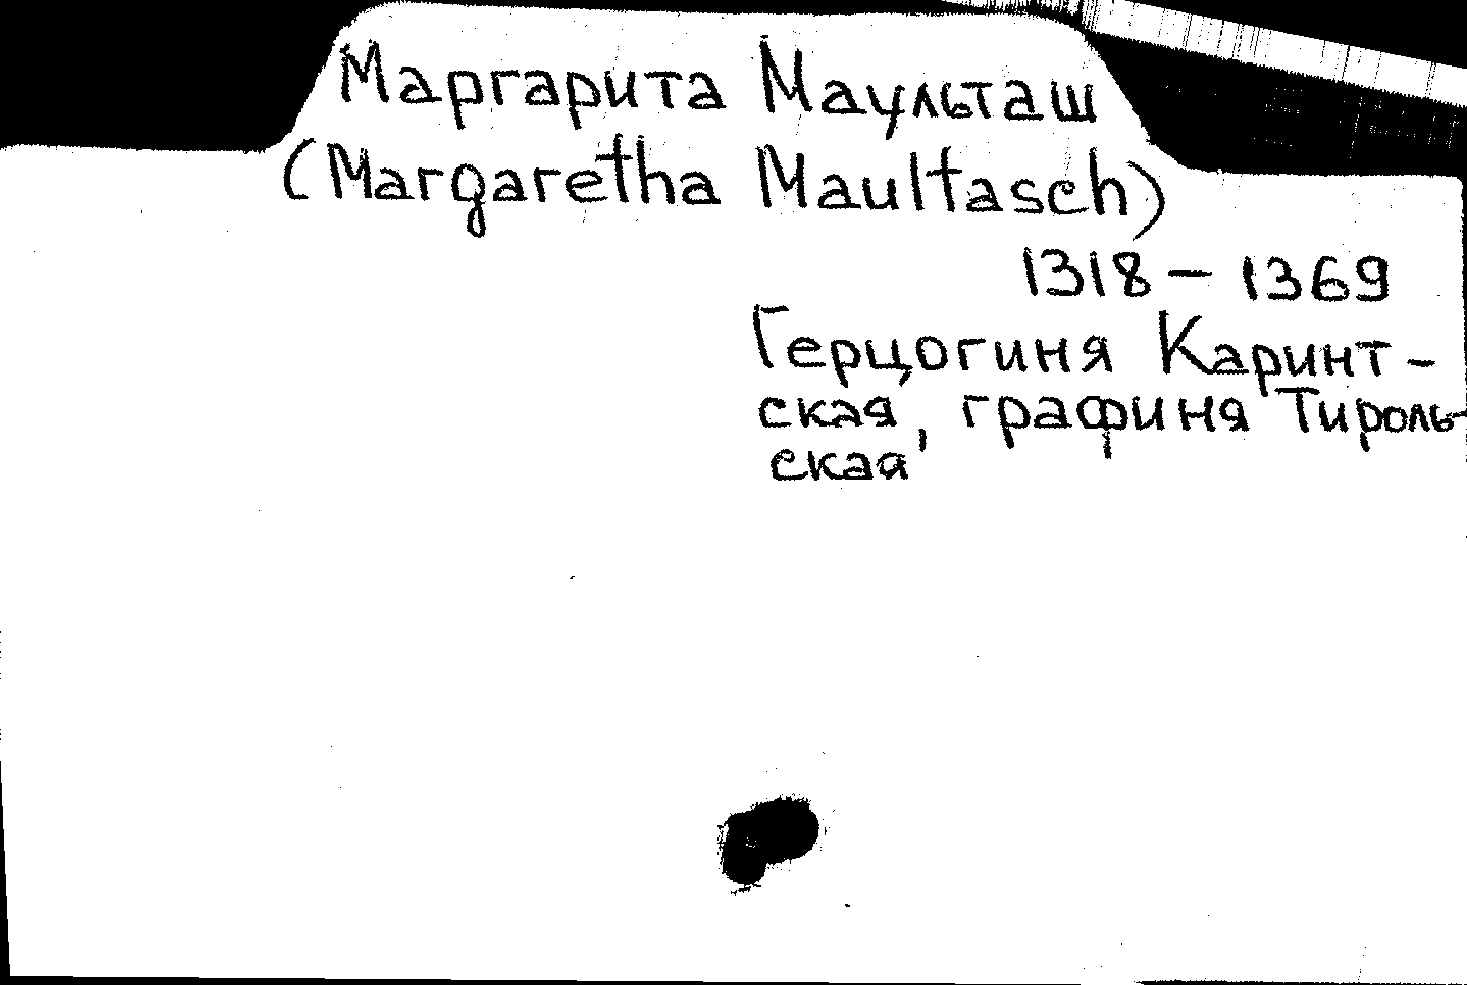 Маргарита Маульташ
(Margaretha Maultasch)
1318 – 1369
Герцогиня Каринт-
ская, графиня Тироль-
ская